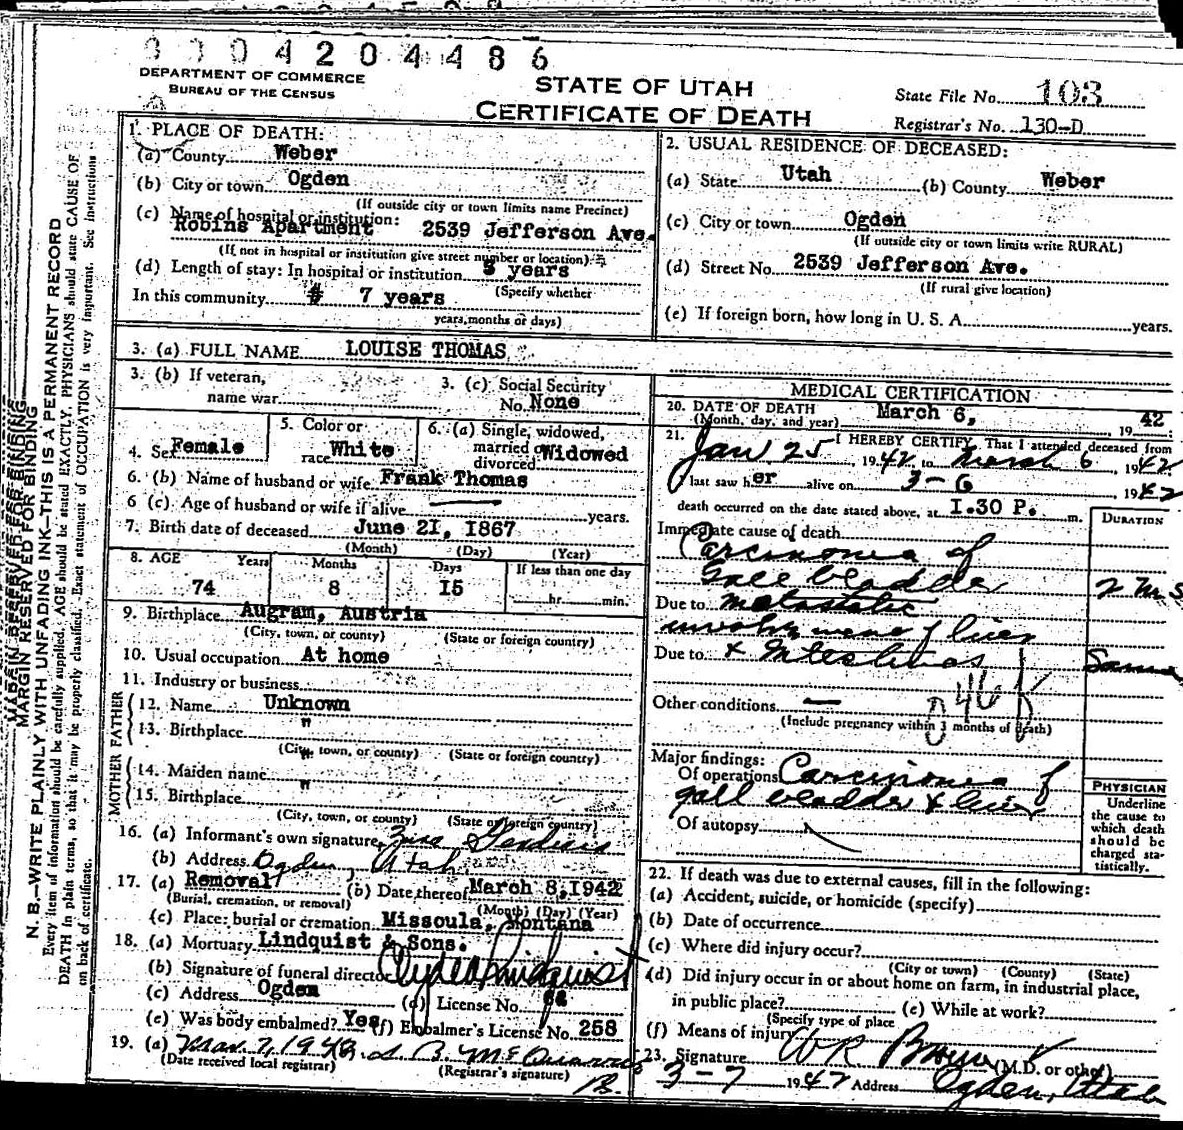 3 3 0 4 2 0 4 4 8 6
DEPARTMENT OF COMMERCE
BUREAU OF THE CENSUS
STATE OF UTAH
CERTIFICATE OF DEATH
State File No. 103
Registrar's No. 130-D
MARGIN RESERVED FOR BINDING
N. B.—WRITE PLAINLY WITH UNFADING INK—THIS IS A PERMANENT RECORD
Every item of information should be carefully supplied. AGE should be stated EXACTLY. PHYSICIANS should state CAUSE OF
DEATH in plain terms, so that it may be properly classified. Exact statement of OCCUPATION is very important. See instructions
on back of certificate.
1. PLACE OF DEATH:
(a) County Weber
(b) City or town Ogden
(If outside city or town limits name Precinct)
(c) Name of hospital or institution:
Robins Apartment 2539 Jefferson Ave.
(If not in hospital or institution give street number or location)
(d) Length of stay: In hospital or institution 3 years
In this community 7 years (Specify whether
years, months or days)
2. USUAL RESIDENCE OF DECEASED:
(a) State Utah (b) County Weber
(c) City or town Ogden
(If outside city or town limits write RURAL)
(d) Street No. 2539 Jefferson Ave.
(If rural give location)
(e) If foreign born, how long in U. S. A. years.
3. (a) FULL NAME LOUISE THOMAS
3. (b) If veteran,
name war
3. (c) Social Security
No. None
4. Sex Female
5. Color or
race White
6. (a) Single, widowed,
married or
divorced Widowed
6. (b) Name of husband or wife Frank Thomas
6 (c). Age of husband or wife if alive — years.
7. Birth date of deceased June 21, 1867
(Month) (Day) (Year)
8. AGE Years Months Days If less than one day
74 8 15 hr. min.
9. Birthplace Augram, Austria
(City, town, or county) (State or foreign country)
10. Usual occupation At home
11. Industry or business
FATHER
12. Name Unknown
13. Birthplace "
(City, town, or county) (State or foreign country)
MOTHER
14. Maiden name "
15. Birthplace "
(City, town, or county) (State or foreign country)
16. (a) Informant's own signature
(b) Address Ogden, Utah
17. (a) Removal (b) Date thereof March 8, 1942
(Burial, cremation, or removal) (Month) (Day) (Year)
(c) Place: burial or cremation Missoula, Montana
18. (a) Mortuary Lindquist & Sons.
(b) Signature of funeral director Clyde Lindquist
(c) Address Ogden (d) License No.
(e) Was body embalmed? Yes (f) Embalmer's License No. 258
19. (a) Mar. 7, 1942
(Date received local registrar) (Registrar's signature)
MEDICAL CERTIFICATION
20. DATE OF DEATH March 6, 19 42
(Month, day, and year)
21. I HEREBY CERTIFY, That I attended deceased from
Jan 25, 1942 to March 6, 1942
I last saw her alive on 3-6, 1942
death occurred on the date stated above, at 1.30 P. m.
DURATION
Immediate cause of death
Carcinoma of
Gall bladder 2 mos
Due to metastatic
involvement of liver
Due to & Intestines Same
46 f
Other conditions —
(Include pregnancy within 3 months of death)
Major findings:
Of operations Carcinoma of
gall bladder & liver
Of autopsy
PHYSICIAN
Underline
the cause to
which death
should be
charged sta-
tistically.
22. If death was due to external causes, fill in the following:
(a) Accident, suicide, or homicide (specify)
(b) Date of occurrence
(c) Where did injury occur?
(City or town) (County) (State)
(d) Did injury occur in or about home on farm, in industrial place,
in public place? (e) While at work?
(Specify type of place
(f) Means of injury
23. Signature W R Brown (M.D. or other)
3-7 1942 Address Ogden, Utah